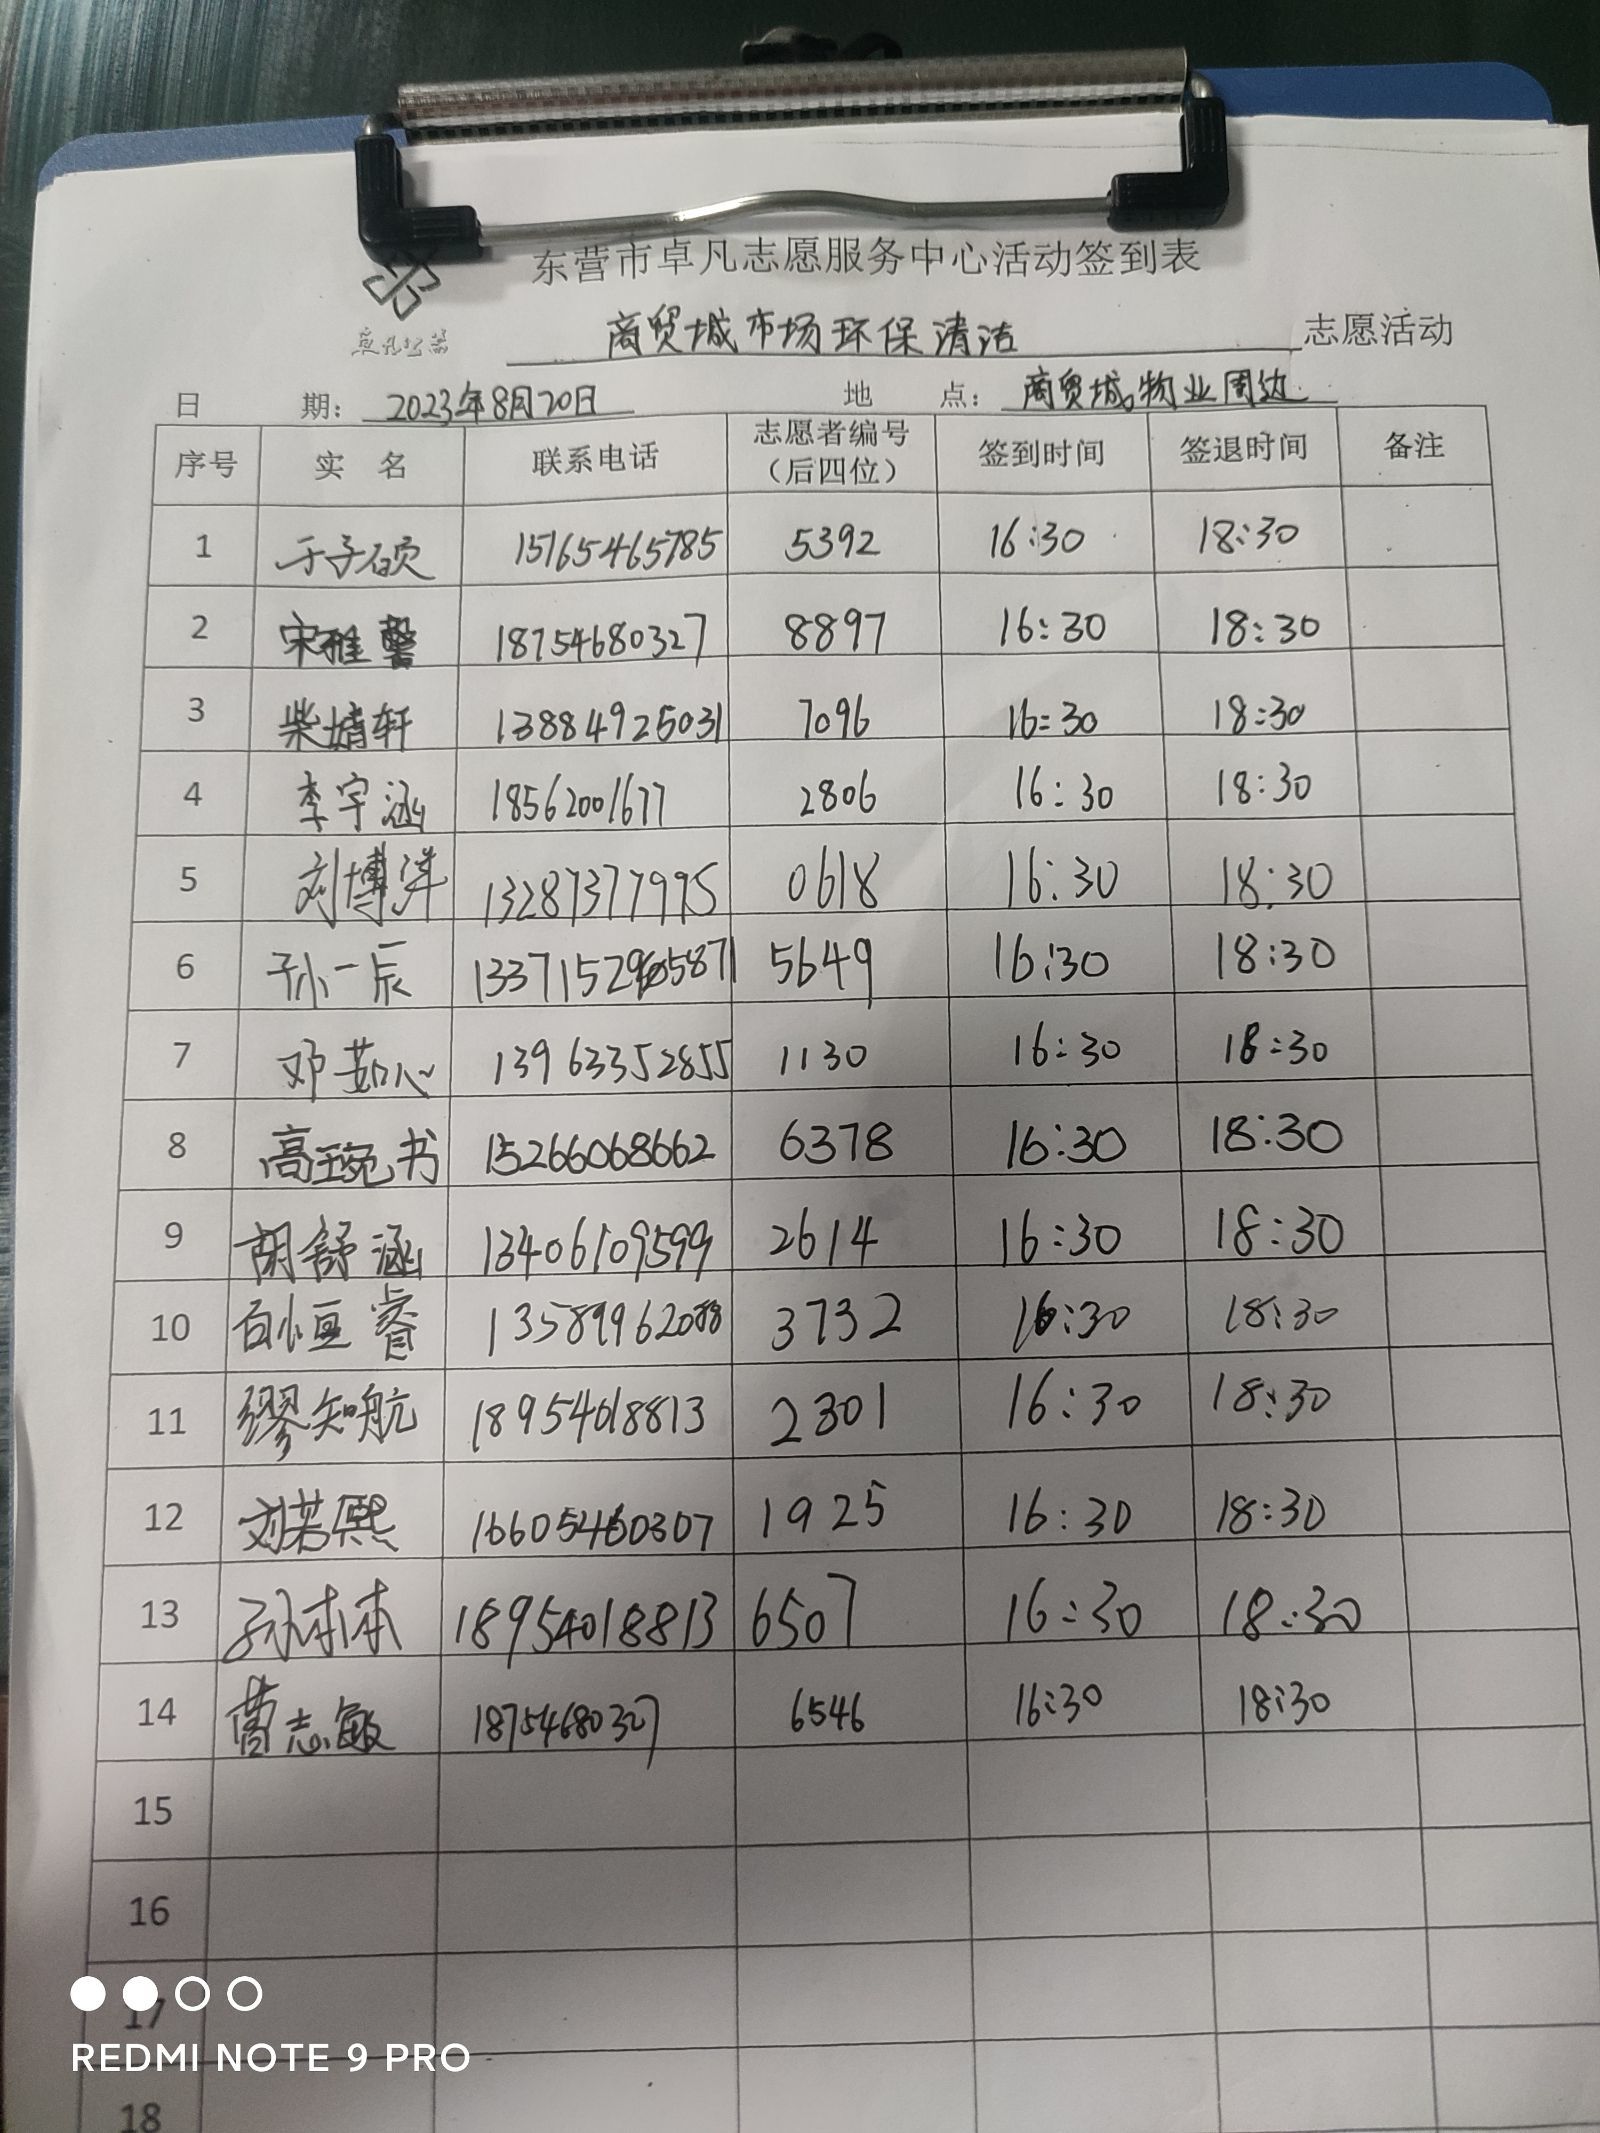 东营市卓凡志愿服务中心活动签到表
卓凡公益
商贸城市场环保清洁 志愿活动
日 期: 2023年8月20日 地 点: 商贸城物业周边
序号 实 名 联系电话 志愿者编号(后四位) 签到时间 签退时间 备注
1 于子硕 15165465785 5392 16:30 18:30
2 宋雅馨 18754680327 8897 16:30 18:30
3 柴婧轩 13884925031 7096 16:30 18:30
4 李宇涵 18562001677 2806 16:30 18:30
5 刘博洋 13287377975 0618 16:30 18:30
6 孙一辰 5649 16:30 18:30
7 邓茹心 13963352855 1130 16:30 18:30
8 高琬书 15266068662 6378 16:30 18:30
9 胡舒涵 13406109599 2614 16:30 18:30
10 睿 3732 16:30 18:30
11 缪知航 18954018813 2301 16:30 18:30
12 刘若熙 16605460307 1925 16:30 18:30
13 孙本本 18954018813 6507 16:30 18:30
14 曹志敏 18754680327 6546 16:30 18:30
15
16
17
18
REDMI NOTE 9 PRO